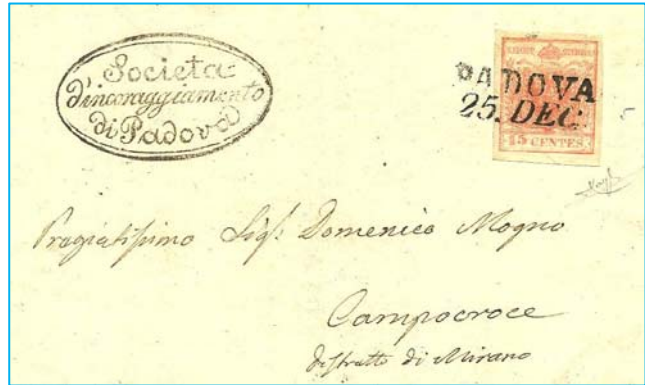 Societa
d'incoraggiamento
di Padova
KKPOST-STEMPEL
15 CENTES
PADOVA
25. DEC.
Pregiatissimo Sigr. Domenico Mogno
Campocroce
distretto di Mirano